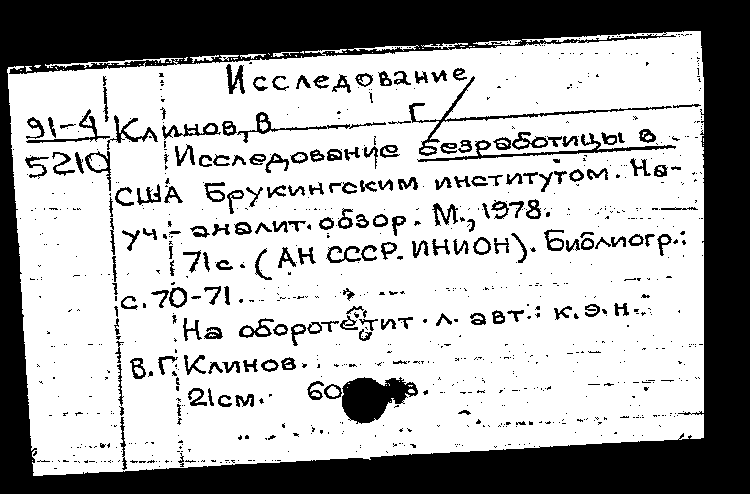 Исследование
91-4 Клинов, В. Г.
5210 Исследование безработицы в
США Брукингским институтом. На-
уч.- аналит. обзор. М., 1978.
71с. (АН СССР. ИНИОН). Библиогр.:
с. 70-71.
На обороте тит. л. авт.: к.э.н.
В.Г. Клинов.
21см.